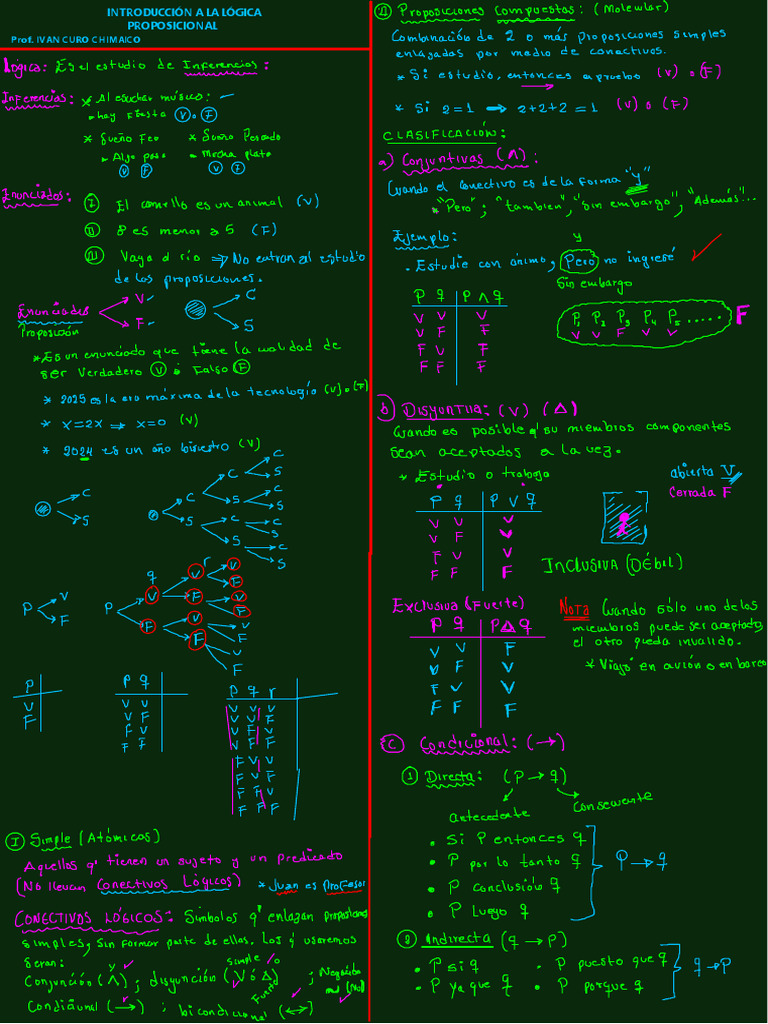 INTRODUCCIÓN A LA LÓGICA
PROPOSICIONAL
Prof. IVAN CURO CHIMAICO
Lógica: Es el estudio de Inferencias:
Inferencias: * Al escuchar música:
• hay Fiesta (V) o (F)
* Sueño Feo * Sueño Pescado
• Algo pasa • Mucha plata
(V) (F) (V) (F)
Enunciados: I El camello es un animal (V)
II 8 es menor a 5 (F)
III Vaya al río ⇒ No entran al estudio
de las proposiciones.
Enunciados V C
Proposición F S
* Es un enunciado que tiene la cualidad de
ser Verdadero (V) o Falso (F)
* 2025 es la era máxima de la tecnología (V) o (F)
* x=2x ⇒ x=0 (V)
* 2024 es un año bisiesto (V)
C C S
C S C S
S C S C S
S C S
P V F
P q r
V F
V F V F
V F V F V F V F
P
V
F
P q
V V
V F
F V
F F
P q r
V V V
V V F
V F V
V F F
F V V
F V F
F F V
F F F
I Simple (Atómicos)
Aquellos q' tienen un sujeto y un predicado
(No llevan Conectivos Lógicos) * Juan es Profesor
CONECTIVOS LÓGICOS: Símbolos q' enlazan proposiciones
simples, sin formar parte de ellas. Los q' usaremos
seran:
Simple
Conjunción (∧) ; disyunción (V ó Δ) ; Negación
Fuerte (No)
Condicional (→) ; bicondicional (↔)
II Proposiciones Compuestas: (Molecular)
Combinación de 2 o más proposiciones simples
enlazadas por medio de conectivos.
* Si estudio, entonces apruebo (V) o (F)
* Si 2=1 ⇒ 2+2+2=1 (V) o (F)
CLASIFICACIÓN:
a) Conjuntivas (∧):
Cuando el conectivo es de la forma "y"
* "Pero"; "tambien", "sin embargo", "Además"...
Ejemplo: y
• Estudie con ánimo, Pero no ingresé
Sin embargo
P q P ∧ q
V V V
V F F
F V F
F F F
P1 P2 P3 P4 P5 ..... F
V V F V V
b) Disyuntiva: (V) (Δ)
Cuando es posible q' su miembros componentes
sean aceptados a la vez.
* Estudio o trabajo
P q P V q
V V V
V F V
F V V
F F F
abierta V
Cerrada F
INCLUSIVA (DÉBIL)
Exclusiva (Fuerte)
P q P Δ q
V V F
V F V
F V V
F F F
NOTA Cuando sólo uno de los
miembros puede ser aceptado,
el otro queda invalido.
* Viajo en avión o en barco
C Condicional: (→)
1 Directa: (P → q)
antecedente Consecuente
• Si P entonces q
• P por lo tanto q
• P conclusión q
• P Luego q
P → q
2 Indirecta (q → P)
• P si q • P puesto que q
• P ya que q • P porque q
q → P